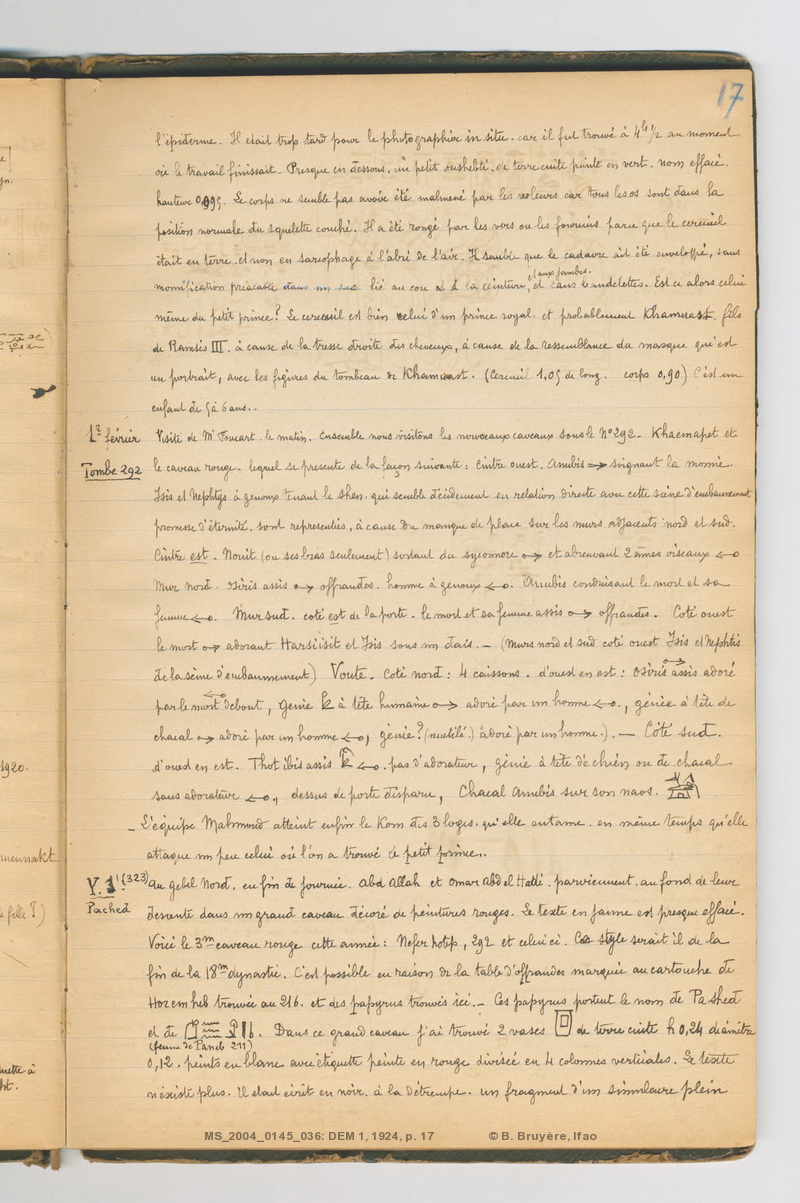 17
l'épiderme. Il était trop tard pour le photographier in situ. car il fut trouvé à 4h 1/2 au moment
où le travail finissait. Presque en dessous, un petit oushebti, de terre cuite peinte en vert. nom effacé.
hauteur 0,095. Le corps ne semble pas avoir été malmené par les voleurs car tous les os sont dans la
position normale du squelette couché. Il a été rongé par les vers ou les fourmis parce que le cercueil
était en terre et non en sarcophage à l'abri de l'air. Il semble que le cadavre ait été enveloppé, sans
et aux jambes.
momification préalable dans un sac lié au cou et à la ceinture, et sans bandelettes. Est ce alors celui
même du petit prince? Le cercueil est bien celui d'un prince royal. et probablement Khamuast. fils
de Ramsès III. à cause de la tresse droite des cheveux, à cause de la ressemblance du masque qui est
un portrait, avec les figures du tombeau de Khamuast. (Cercueil 1,05 de long. corps 0,90) C'est un
enfant de 5 à 6 ans..
1r février Visite de Mr Foucart. le matin. Ensemble nous visitons les nouveaux caveaux sous le N° 292. Khaemapet et
Tombe 292 le caveau rouge. lequel se présente de la façon suivante: Cintre ouest. Anubis → soignant la momie.
Isis et Nephtys à genoux tenant le shen. qui semble décidément en relation directe avec cette scène d'embaumement
promesse d'éternité. sont représentées, à cause du manque de place sur les murs adjacents nord et sud.
Cintre est. Nouït (ou ses bras seulement) sortant du sycomore → et abreuvant 2 âmes oiseaux ←
Mur nord. Osiris assis → offrandes. homme à genoux ←. Anubis conduisant le mort et sa
femme ←. Mur sud. coté est de la porte. le mort et sa femme assis → offrandes. Coté ouest
le mort → adorant Harsiésit et Isis sous un dais. — (Murs nord et sud coté ouest Isis et Nephtis
de la scène d'embaumement) Voute. Coté nord: 4 caissons. d'ouest en est: Osiris assis → adoré
par le mort ← debout, génie à tête humaine → adoré par un homme ←., génie à tête de
chacal → adoré par un homme ←, génie? (mutilé.) adoré par un homme.). — Côté sud.
d'ouest en est. Thot ibis assis ←. pas d'adorateur, génie à tête de chien ou de chacal
sans adorateur ←, dessus de porte disparu, Chacal Anubis sur son naos.
_ L'équipe Mahmoud atteint enfin le Kom des 3 loges. qu'elle entame. en même temps qu'elle
attaque un peu celui où l'on a trouvé le petit prince..
Y. 1' (323) Au gebel Nord. en fin de journée. Abd Allah et Omar Abd el Hadi. parviennent. au fond de leur
Pached descente dans un grand caveau décoré de peintures rouges. Le texte en jaune est presque effacé.
Voici le 3me caveau rouge cette année: Nefer hotep, 292 et celui ci. Ce style serait il de la
fin de la 18me dynastie. C'est possible en raison de la table d'offrandes marquée au cartouche de
Horemheb trouvée au 216. et des papyrus trouvés ici. — Ces papyrus portent le nom de Pa shed
et de . Dans ce grand caveau j'ai trouvé 2 vases de terre cuite h 0,24 diamètre
(femme de Paneb 211)
0,12. peints en blanc avec étiquette peinte en rouge divisée en 4 colonnes verticales. Le texte
n'existe plus. Il était écrit en noir. à la détrempe. un fragment d'un simulacre plein
1920.
MS_2004_0145_036: DEM 1, 1924, p. 17 © B. Bruyère, Ifao